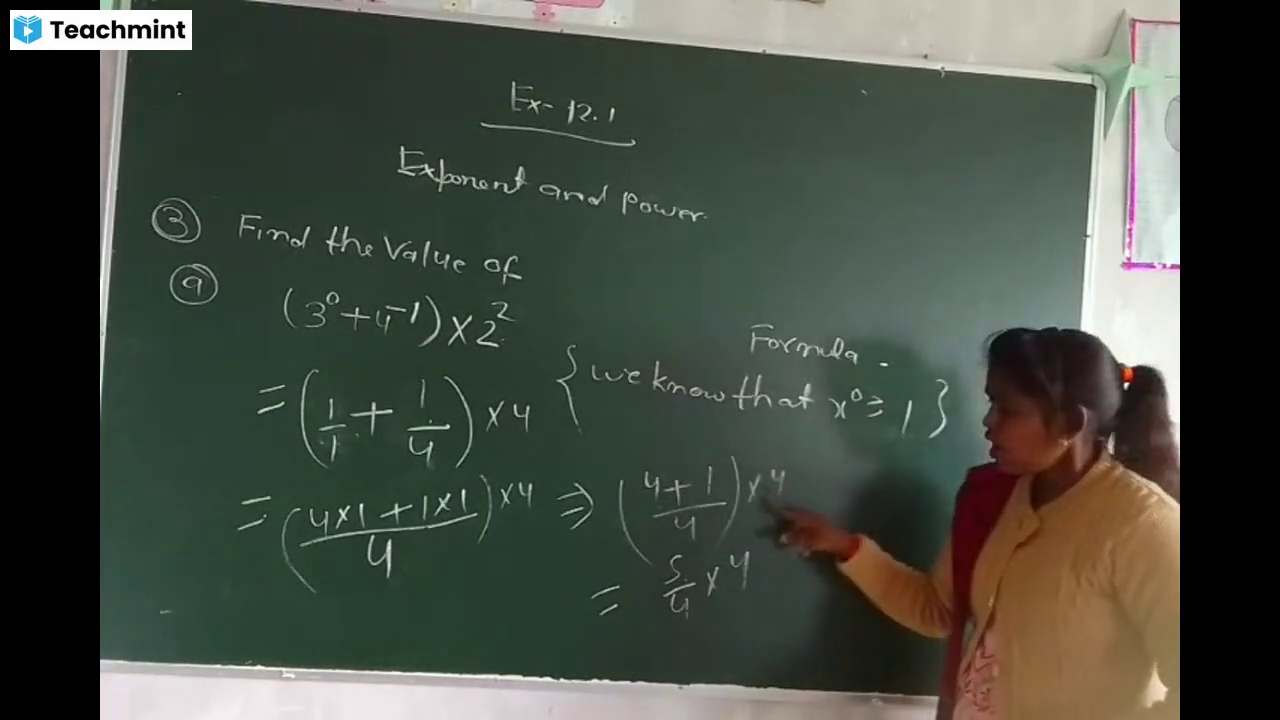 Teachmint
Ex- 12.1
Exponent and power.
③ Find the Value of
ⓐ (3⁰+4⁻¹)×2²
Formula -
= (1/1 + 1/4) × 4 {we know that x⁰ = 1}
= (4×1+1×1/4) ×4 ⇒ (4+1/4) ×4
= 5/4 × 4